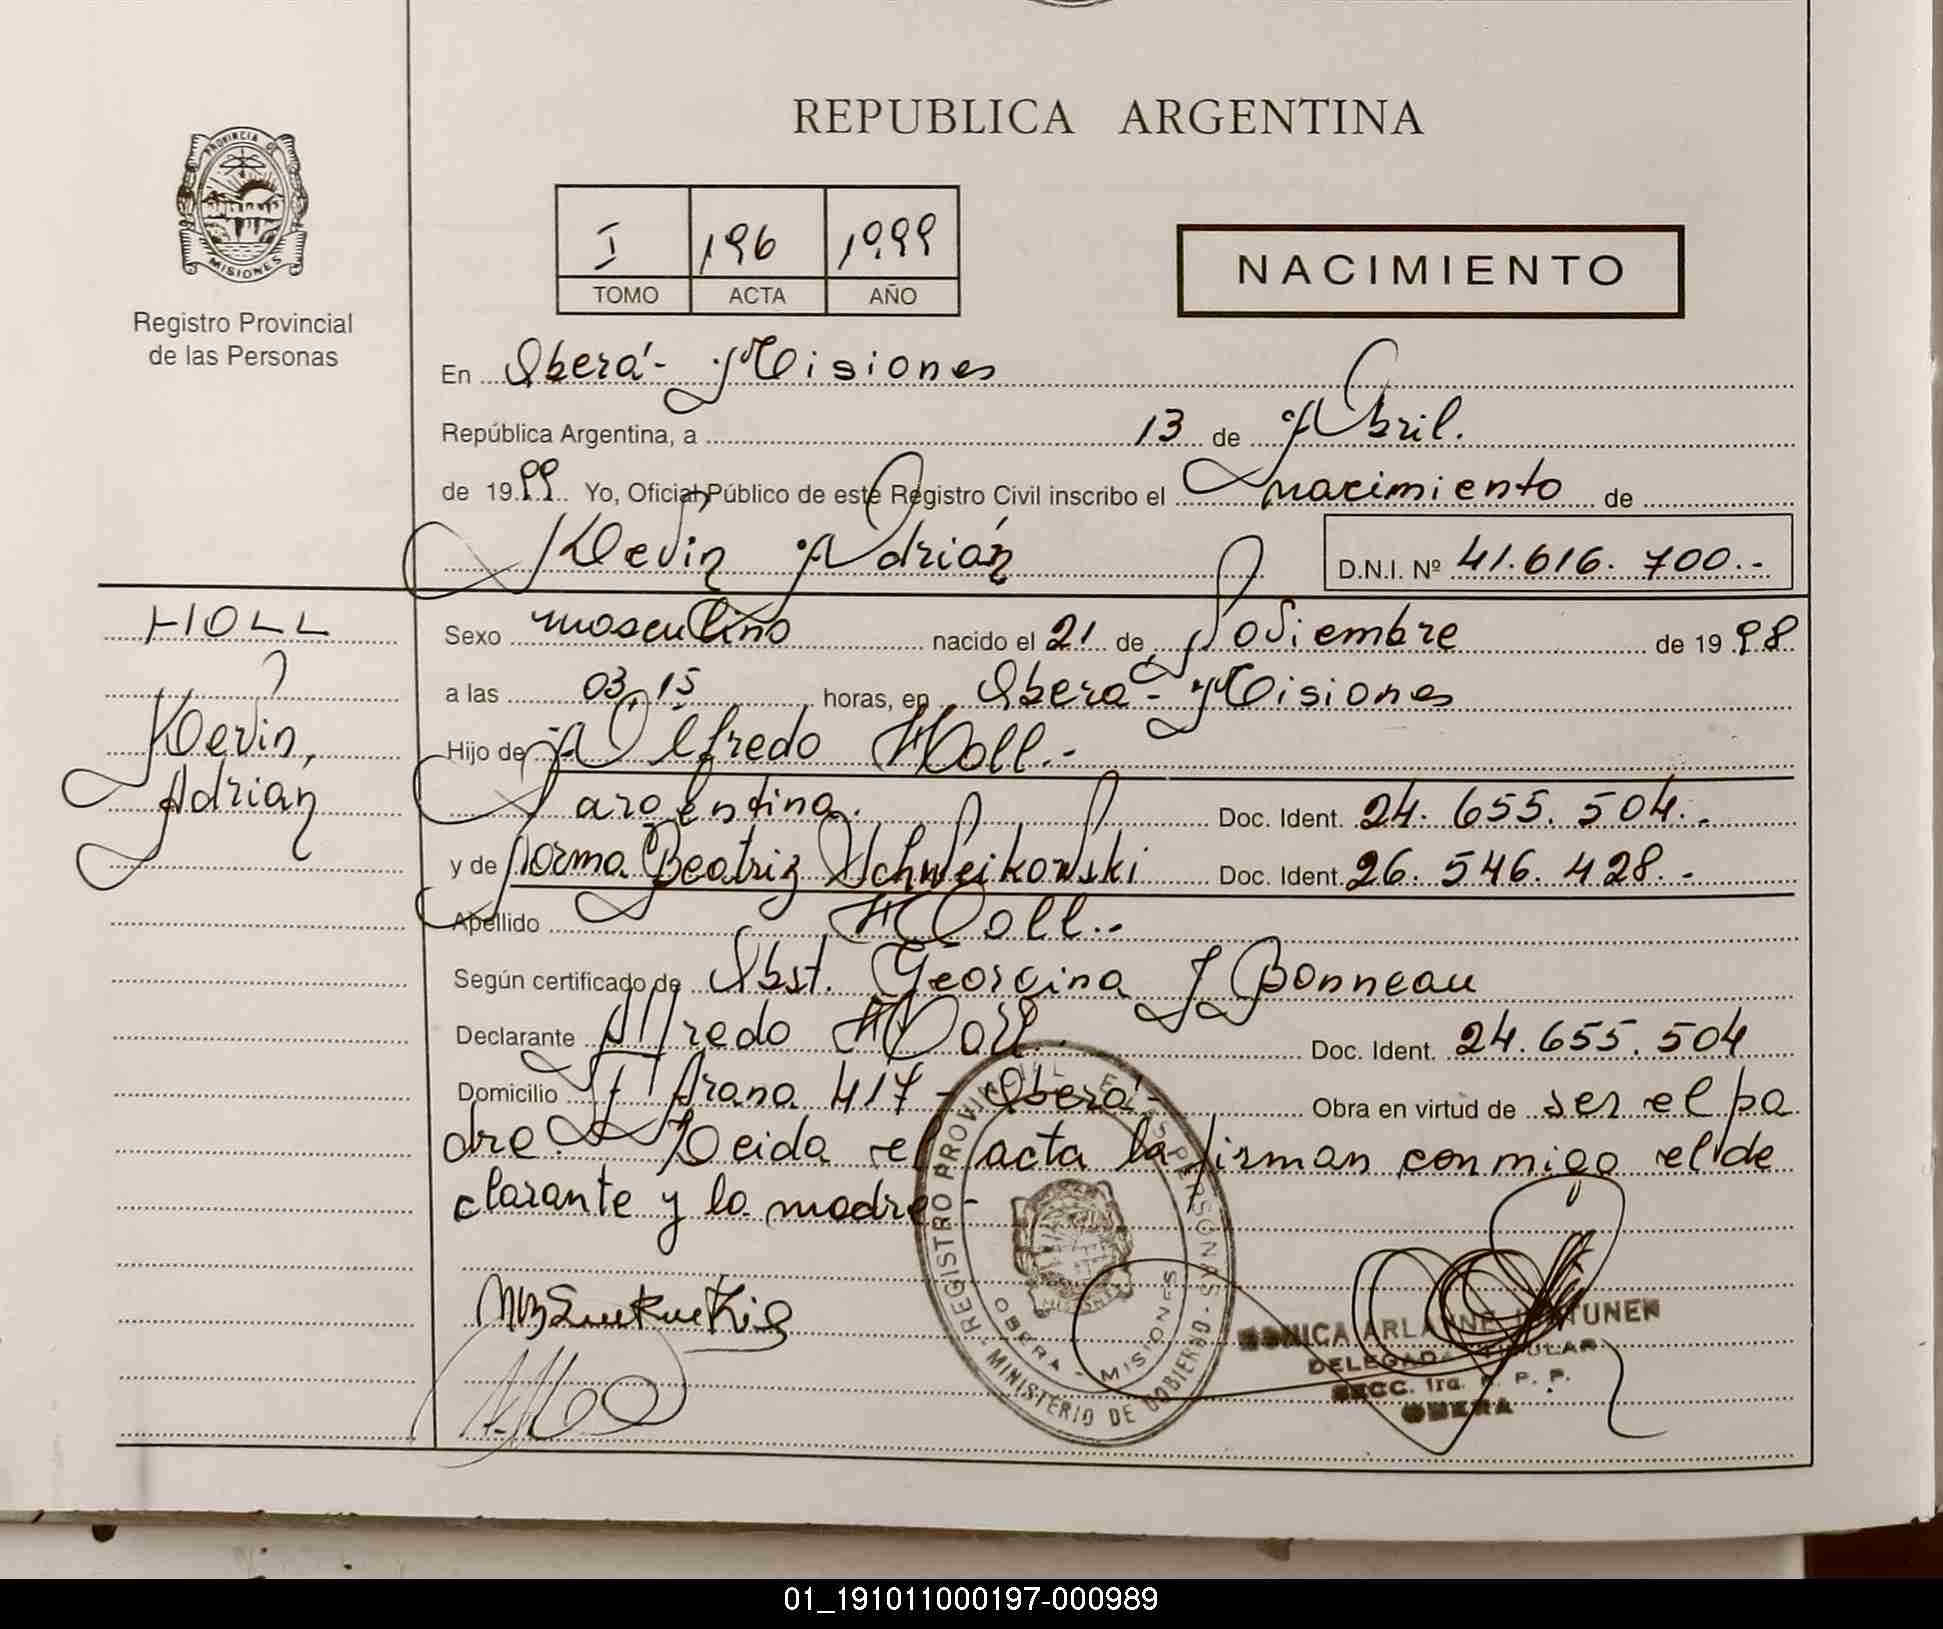 REPUBLICA ARGENTINA
PROVINCIA DE
MISIONES
Registro Provincial
de las Personas
I 196 1999
TOMO ACTA AÑO
NACIMIENTO
En Oberá - Misiones
República Argentina, a 13 de Abril.
de 1999 Yo, Oficial Público de este Registro Civil inscribo el nacimiento de
Kevin Adrián
D.N.I. Nº 41.616.700.-
HOLL
Kevin,
Adrián
Sexo masculino nacido el 21 de Noviembre de 1998
a las 03,15 horas, en Oberá - Misiones
Hijo de Alfredo Holl.-
argentina. Doc. Ident. 24.655.504.-
y de Norma Beatriz Schweikowski Doc. Ident. 26.546.428.-
Apellido Holl.-
Según certificado de Obst. Georgina J Bonneau
Declarante Alfredo Holl. Doc. Ident. 24.655.504
Domicilio Arana 417 - Oberá - Obra en virtud de ser el pa
dre. Leida el acta la firman conmigo el de
clarante y la madre -
REGISTRO PROVINCIAL DE LAS PERSONAS - MINISTERIO DE GOBIERNO -
OBERA - MISIONES
MISIONES
MONICA ARLANNE
DELEGADA TITULAR
SECC. 1ra. R. P. P.
OBERA
01_191011000197-000989